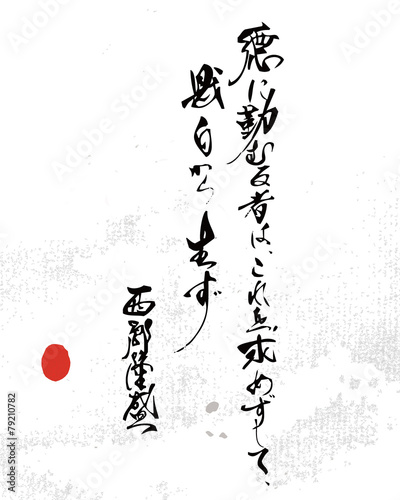 徳に勤むる者は、これを求めずして、
財自から生ず
西郷隆盛
Adobe Stock
79210782